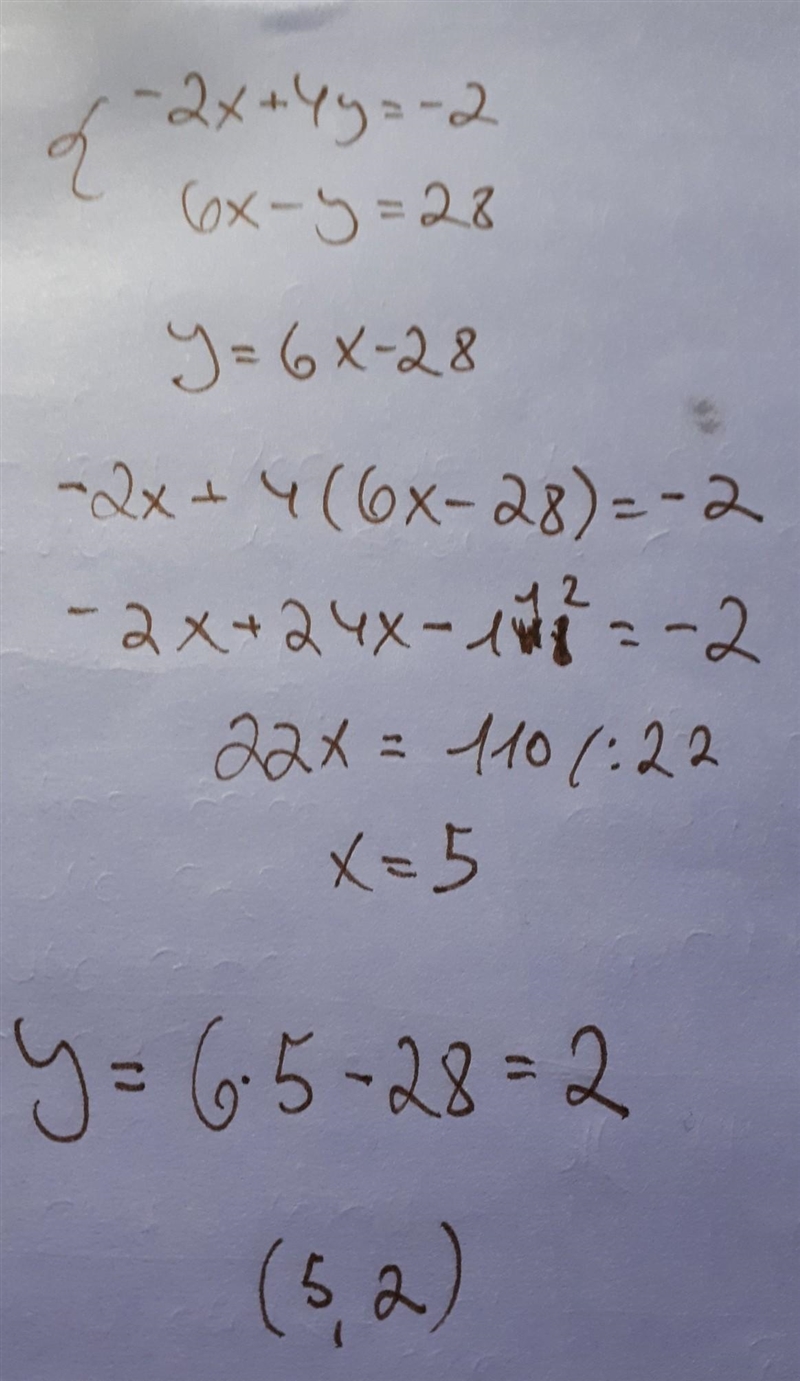 { -2x+4y=-2
6x-y=28
y=6x-28
-2x+4(6x-28)=-2
-2x+24x-112=-2
22x=110/:22
x=5
y=6·5-28=2
(5,2)